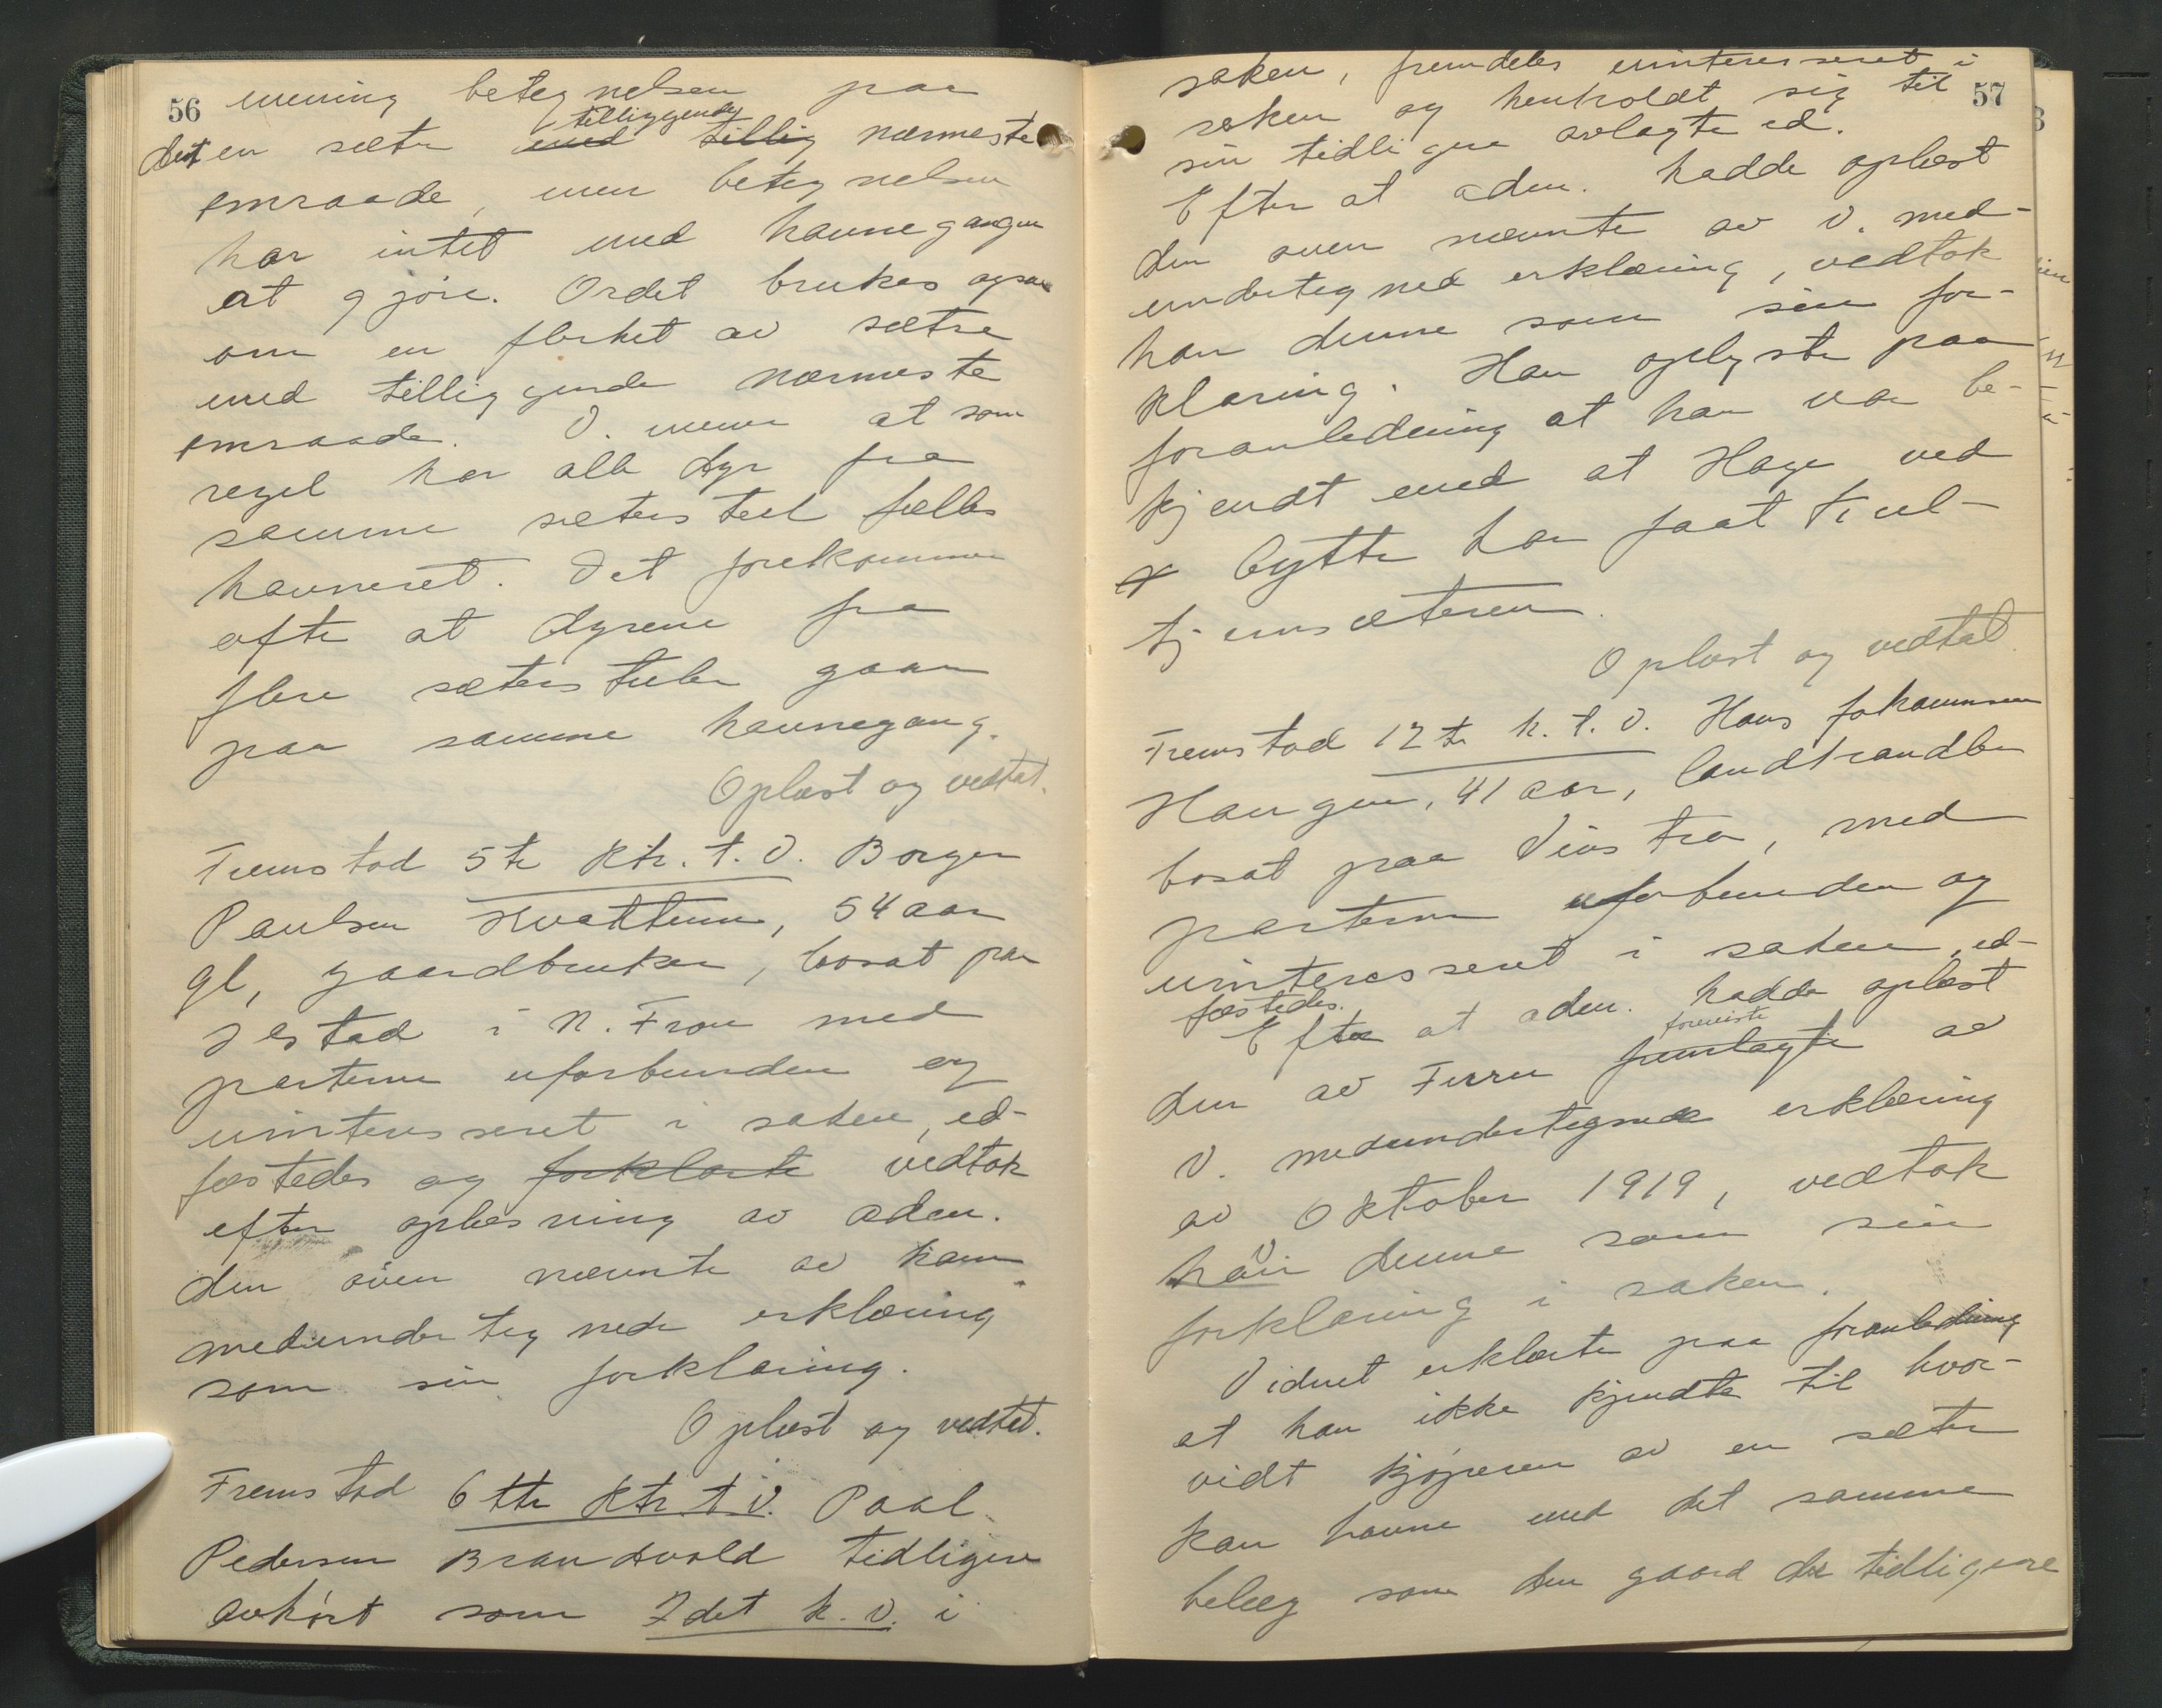 56 mening betegnelsen paa
det en sæter med tillig tilliggende nærmeste
omraade, men betegnelsen
har intet med havnegangen
at gjøre. Ordet brukes ogsaa
om en flerhet av sætre
med tilliggende nærmeste
omraade. V. mener at som
regel har alle dyr fra
samme sætersteel fælles
havneret. Det forekommer
ofte at dyrene fra
flere sætersteeler gaar
paa samme havnegang.
Oplæst og vedtat.
Fremstod 5te ktr. t. V. Borger
Paulsen Kvattum, 54 aar
gl, gaardbruker, bosat paa
Jestad i N. Fron med
parterne uforbunden og
uinteresseret i saken, ed-
fæstedes og forklarte vedtok
efter oplæsning av adm.
den oven nævnte av ham
medundertegnede erklæring
som sin forklaring.
Oplæst og vedtat.
Fremstod 6tte ktr. t. V. Paal
Pedersen Brandvold tidligere
avhørt som 7det h. V. i
57
saken, fremdeles uinteresseret i
saken og henholdt sig til
sin tidligere avlagte ed.
Efter at adm. hadde oplæst
den oven nævnte av V. med-
undertegned erklæring, vedtok
han denne som sin for-
klaring. Han oplyste paa
foranledning at han var be-
kjendt med at Hage ved
bytte har faat Kvel-
tjernsæteren.
Oplæst og vedtat.
Fremstod 12te h. t. V. Hans Johannessen
Haugen, 41 aar, landhandler
bosat paa Vinstra, med
parterne uforbunden og
uinteresseret i saken, ed-
fæstedes.
Efter at adm. hadde oplæst
den av Furru fremlagte foreviste av
V. medundertegnede erklæring
av Oktober 1919, vedtok
han V denne som sin
forklaring i saken.
Vidnet erklærte paa foranledning
at han ikke kjendte til hvor-
vidt kjøperen av en sæter
kan havne med det samme
belæg som den gaard der tidligere